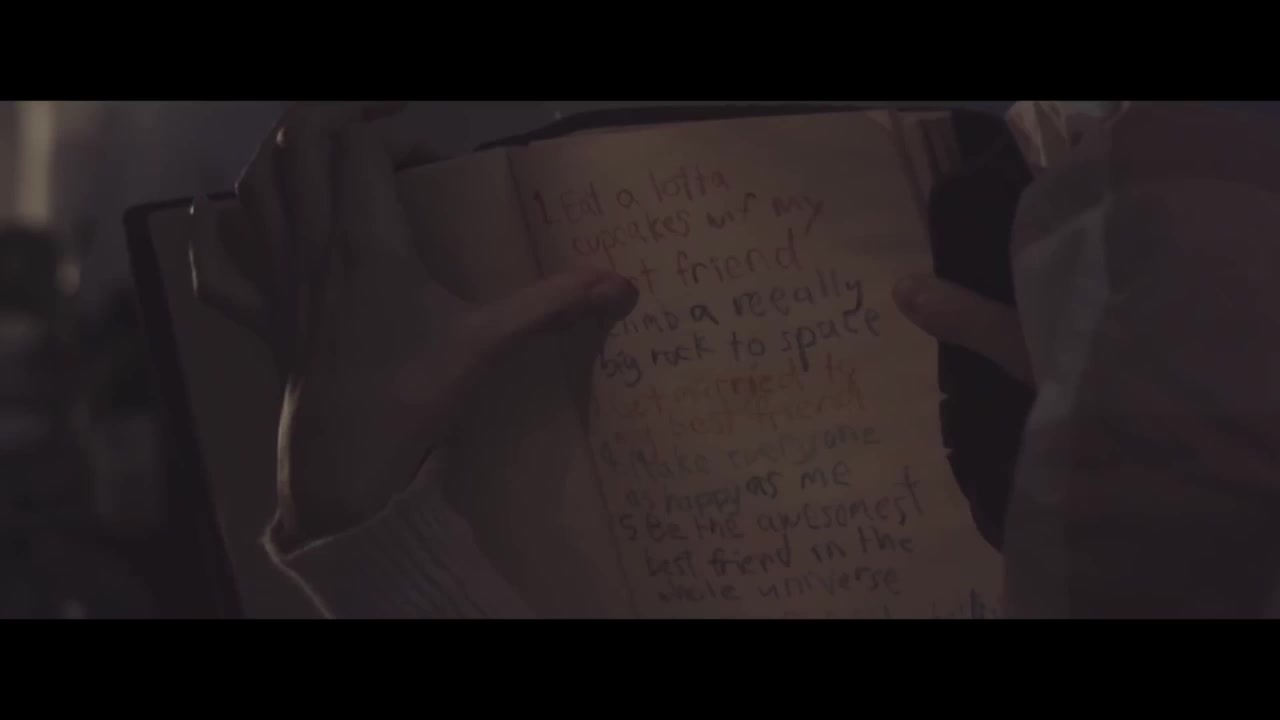 1. Eat a lotta
cupcakes wif my
friend
a reeally
big rock to space
Get married to
best friend
4. Make everyone
as happy as me
5. Be the awesomest
best friend in the
whole universe